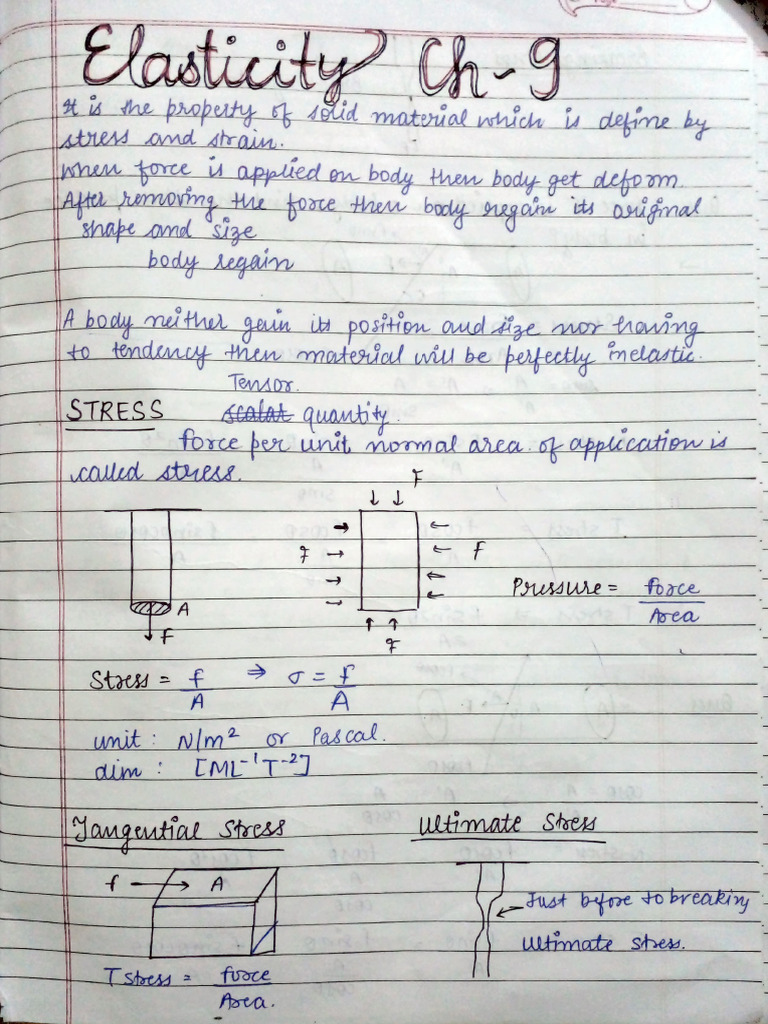 Elasticity Ch-9
It is the property of solid material which is define by
stress and strain.
when force is applied on body then body get deform.
After removing the force then body regain its original
shape and size
body regain
A body neither gain its position and size nor having
to tendency then material will be perfectly inelastic.
Tensor.
STRESS scalat quantity.
force per unit normal area of application is
called stress.
F
F F
A
F
F
Pressure = force
Area
Stress = f ⇒ σ = f
A A
unit : N/m² or Pascal.
dim : [ML⁻¹T⁻²]
Tangential Stress Ultimate Stress
f A
Just before to breaking
Ultimate stress.
T stress = force
Area.